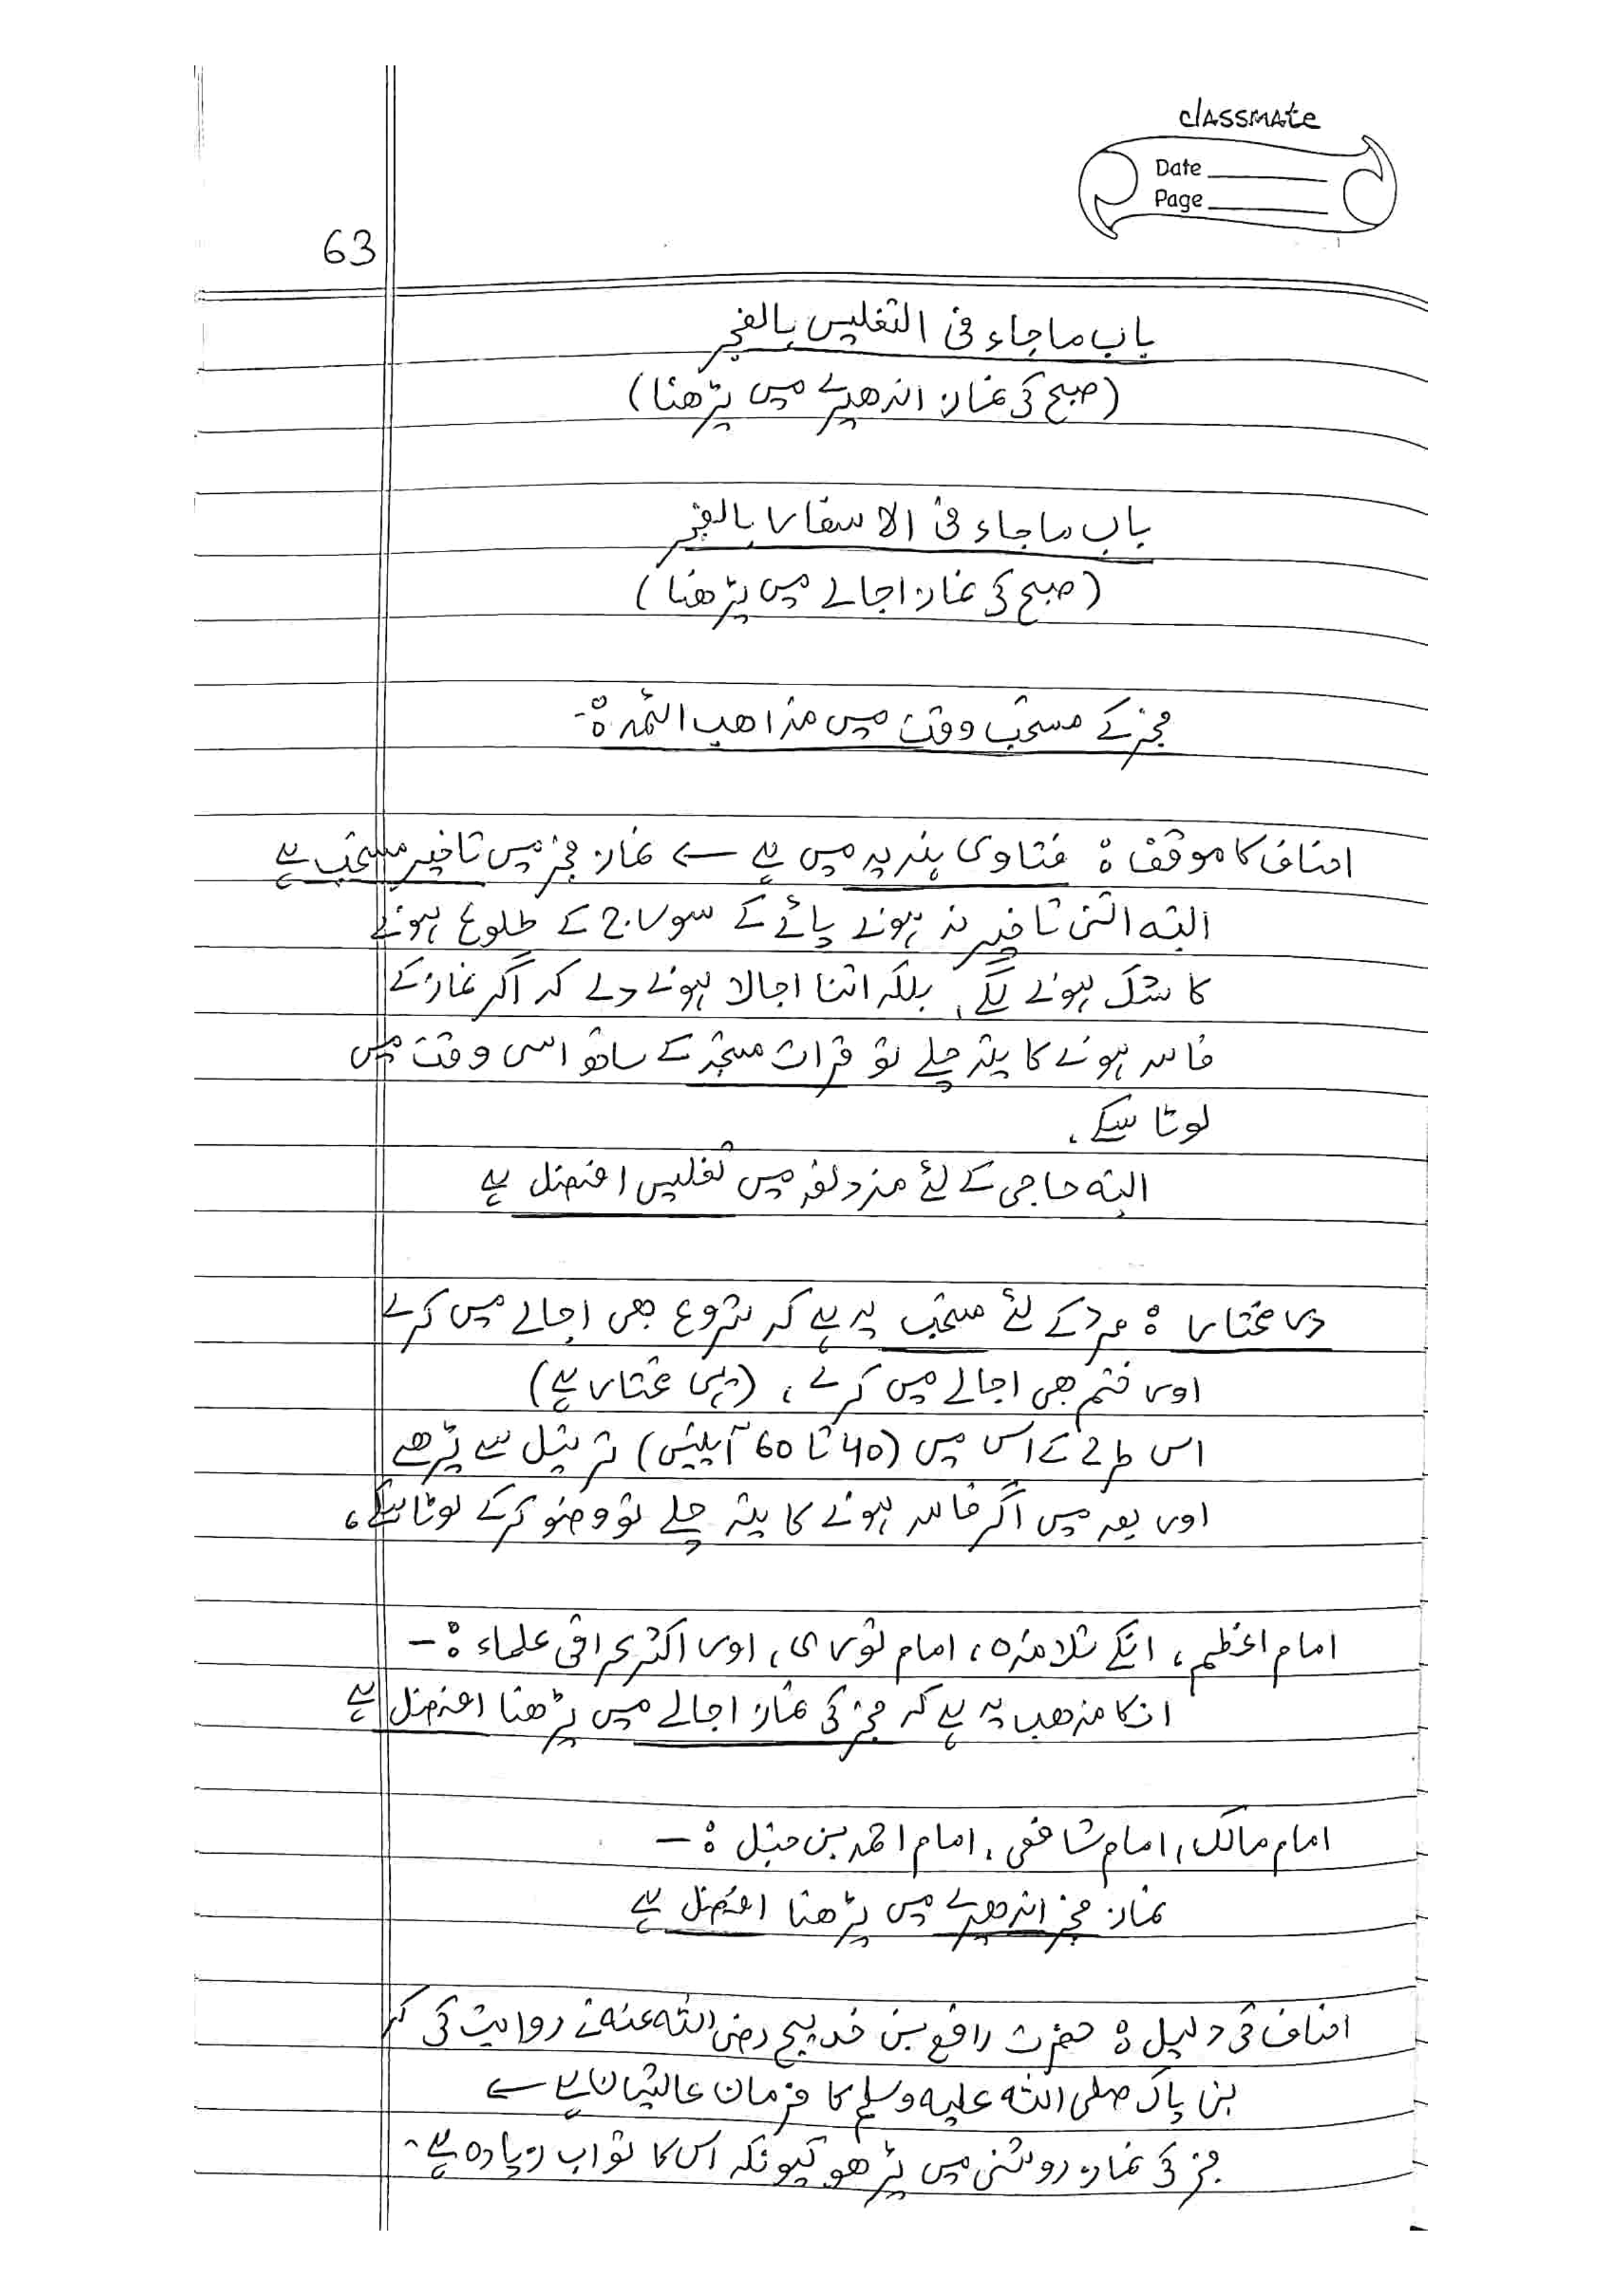 classmate
Date
Page
63
باب ماجاء فی التغلیس بالفجر
(صبح کی نماز اندھیرے میں پڑھنا)
باب ماجاء فی الاسفار بالفجر
(صبح کی نماز اجالے میں پڑھنا)
فجر کے مستحب وقت میں مذاھب ائمہ :-
احناف کا موقف : فتاوی ہندیہ میں ہے ← نماز فجر میں تاخیر مستحب ہے
البتہ اتنی تاخیر نہ ہونے پائے کے سورج کے طلوع ہونے
کا شک ہونے لگے، بلکہ اتنا اجالا ہونے دے کہ اگر نماز کے
فاسد ہونے کا پتہ چلے تو قرات مستحبہ کے ساتھ اسی وقت میں
لوٹا سکے ۔
البتہ حاجی کے لئے مزدلفہ میں تغلیس افضل ہے
در مختار : مرد کے لئے مستحب یہ ہے کہ شروع بھی اجالے میں کرے
اور ختم بھی اجالے میں کرے ، (یہی مختار ہے)
اس طرح کے اس میں (40 تا 60 آیتیں) ترتیل سے پڑھے
اور بعد میں اگر فاسد ہونے کا پتہ چلے تو وضو کرکے لوٹا سکے ،
امام اعظم ، انکے تلامذہ ، امام ثوری ، اور اکثر عراقی علماء :-
انکا مذھب یہ ہے کہ فجر کی نماز اجالے میں پڑھنا افضل ہے
امام مالک ، امام شافعی ، امام احمد بن حنبل :-
نماز فجر اندھیرے میں پڑھنا افضل ہے
احناف کی دلیل : حضرت رافع بن خدیج رضی اللہ عنہ نے روایت کی کہ
نبی پاک صلی اللہ علیہ وسلم کا فرمان عالیشان ہے ←
فجر کی نماز روشنی میں پڑھو کیونکہ اس کا ثواب زیادہ ہے -